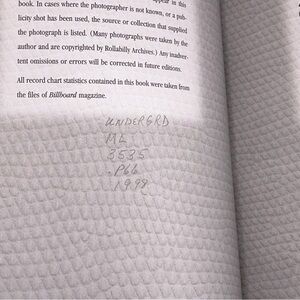 appear in this
book. In cases where the photographer is not known, or a pub-
licity shot has been used, the source or collection that supplied
the photograph is listed. (Many photographs were taken by the
author and are copyrighted by Rollabilly Archives.) Any inadver-
tent omissions or errors will be corrected in future editions.
All record chart statistics contained in this book were taken from
the files of Billboard magazine.
UNDERGRD
ML
3535
.P66
1998